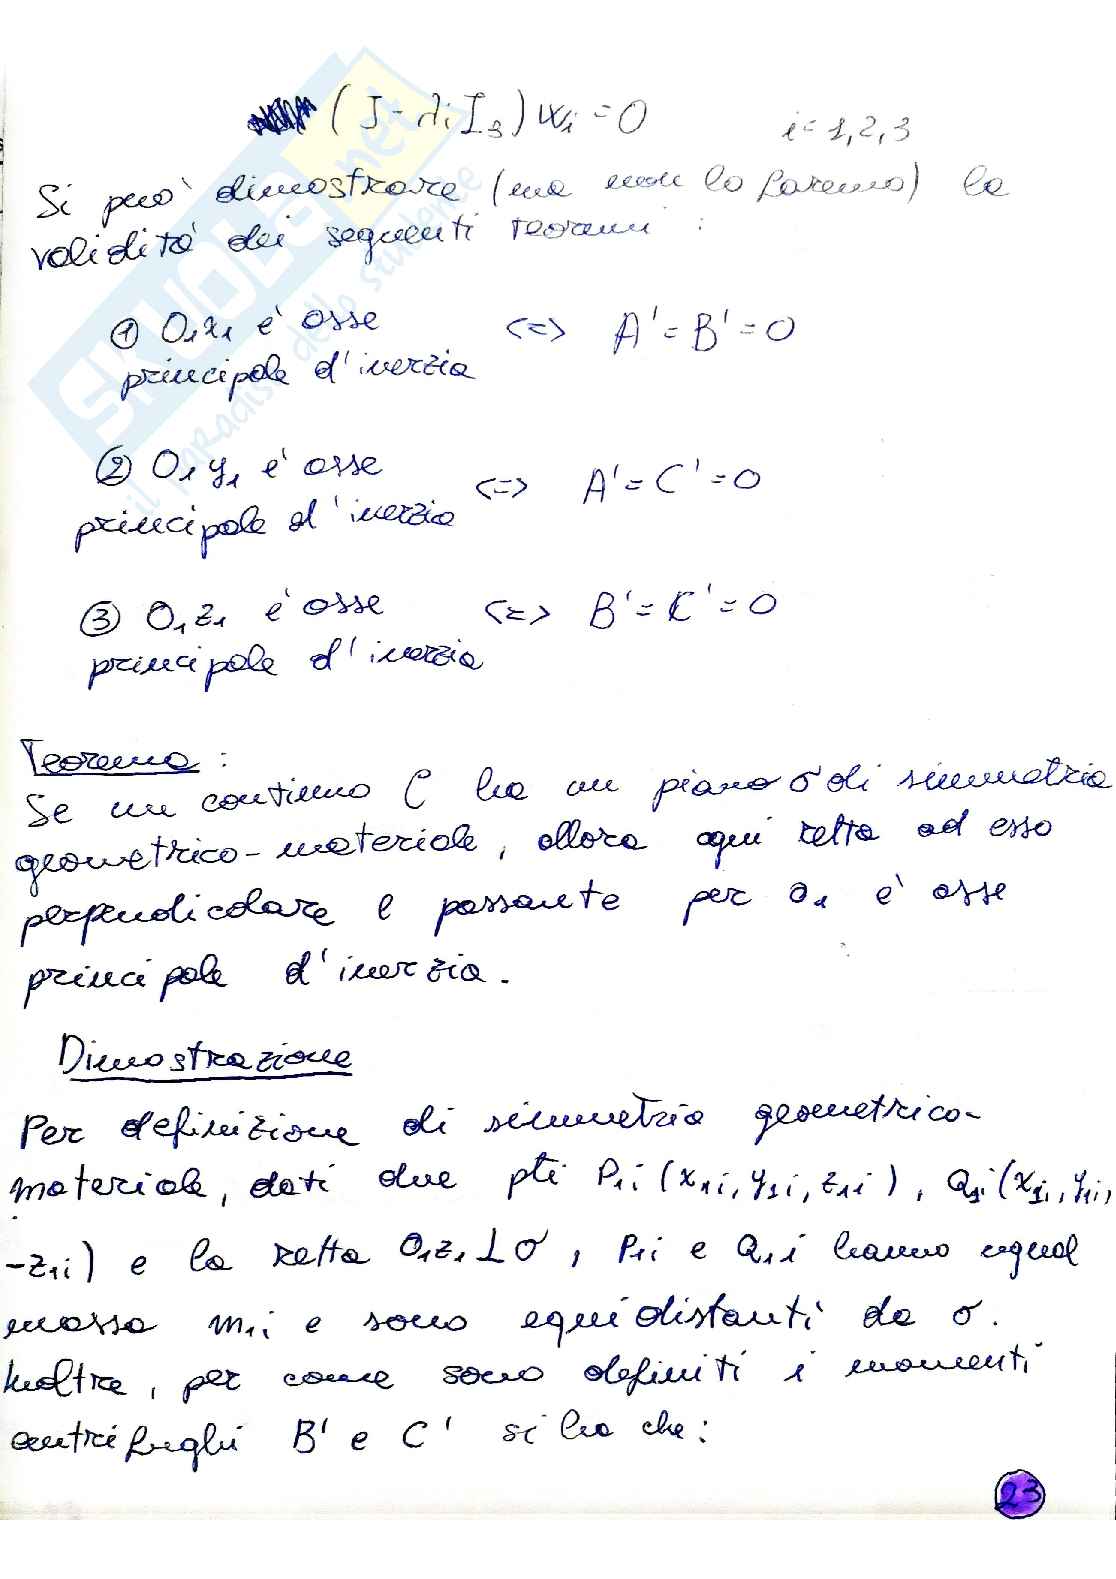 (J - λi I3) wi = 0 i = 1, 2, 3
Si può dimostrare (ma non lo faremo) la
validità dei seguenti teoremi :
① O1x1 è asse <=> A' = B' = 0
principale d'inerzia
② O1y1 è asse <=> A' = C' = 0
principale d'inerzia
③ O1z1 è asse <=> B' = C' = 0
principale d'inerzia
Teorema :
Se un continuo C ha un piano σ di simmetria
geometrico-materiale, allora ogni retta ad esso
perpendicolare e passante per O1 è asse
principale d'inerzia.
Dimostrazione
Per definizione di simmetria geometrico-
materiale, dati due pti P1i (x1i, y1i, z1i), Q1i (x1i, y1i,
-z1i) e la retta O1z1 ⊥ σ, P1i e Q1i hanno ugual
massa m1i e sono equidistanti da σ.
Inoltre, per come sono definiti i momenti
centrifughi B' e C' si ha che:
23
SKUOLA.net
il paradiso dello studente